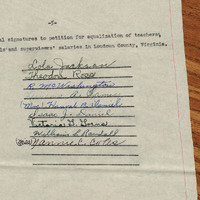 -5-
al signatures to petition for equalization of teachers,
ls' and supervisors' salaries in Loudoun County, Virginia.
Lola Jackson
Theodora Ross
R. Mc Washington
A.
Mrs. Hannah B. Daniel
Isaac J. Daniel
G. Goins
William S. Randall
(Miss) Nannie C. Coles